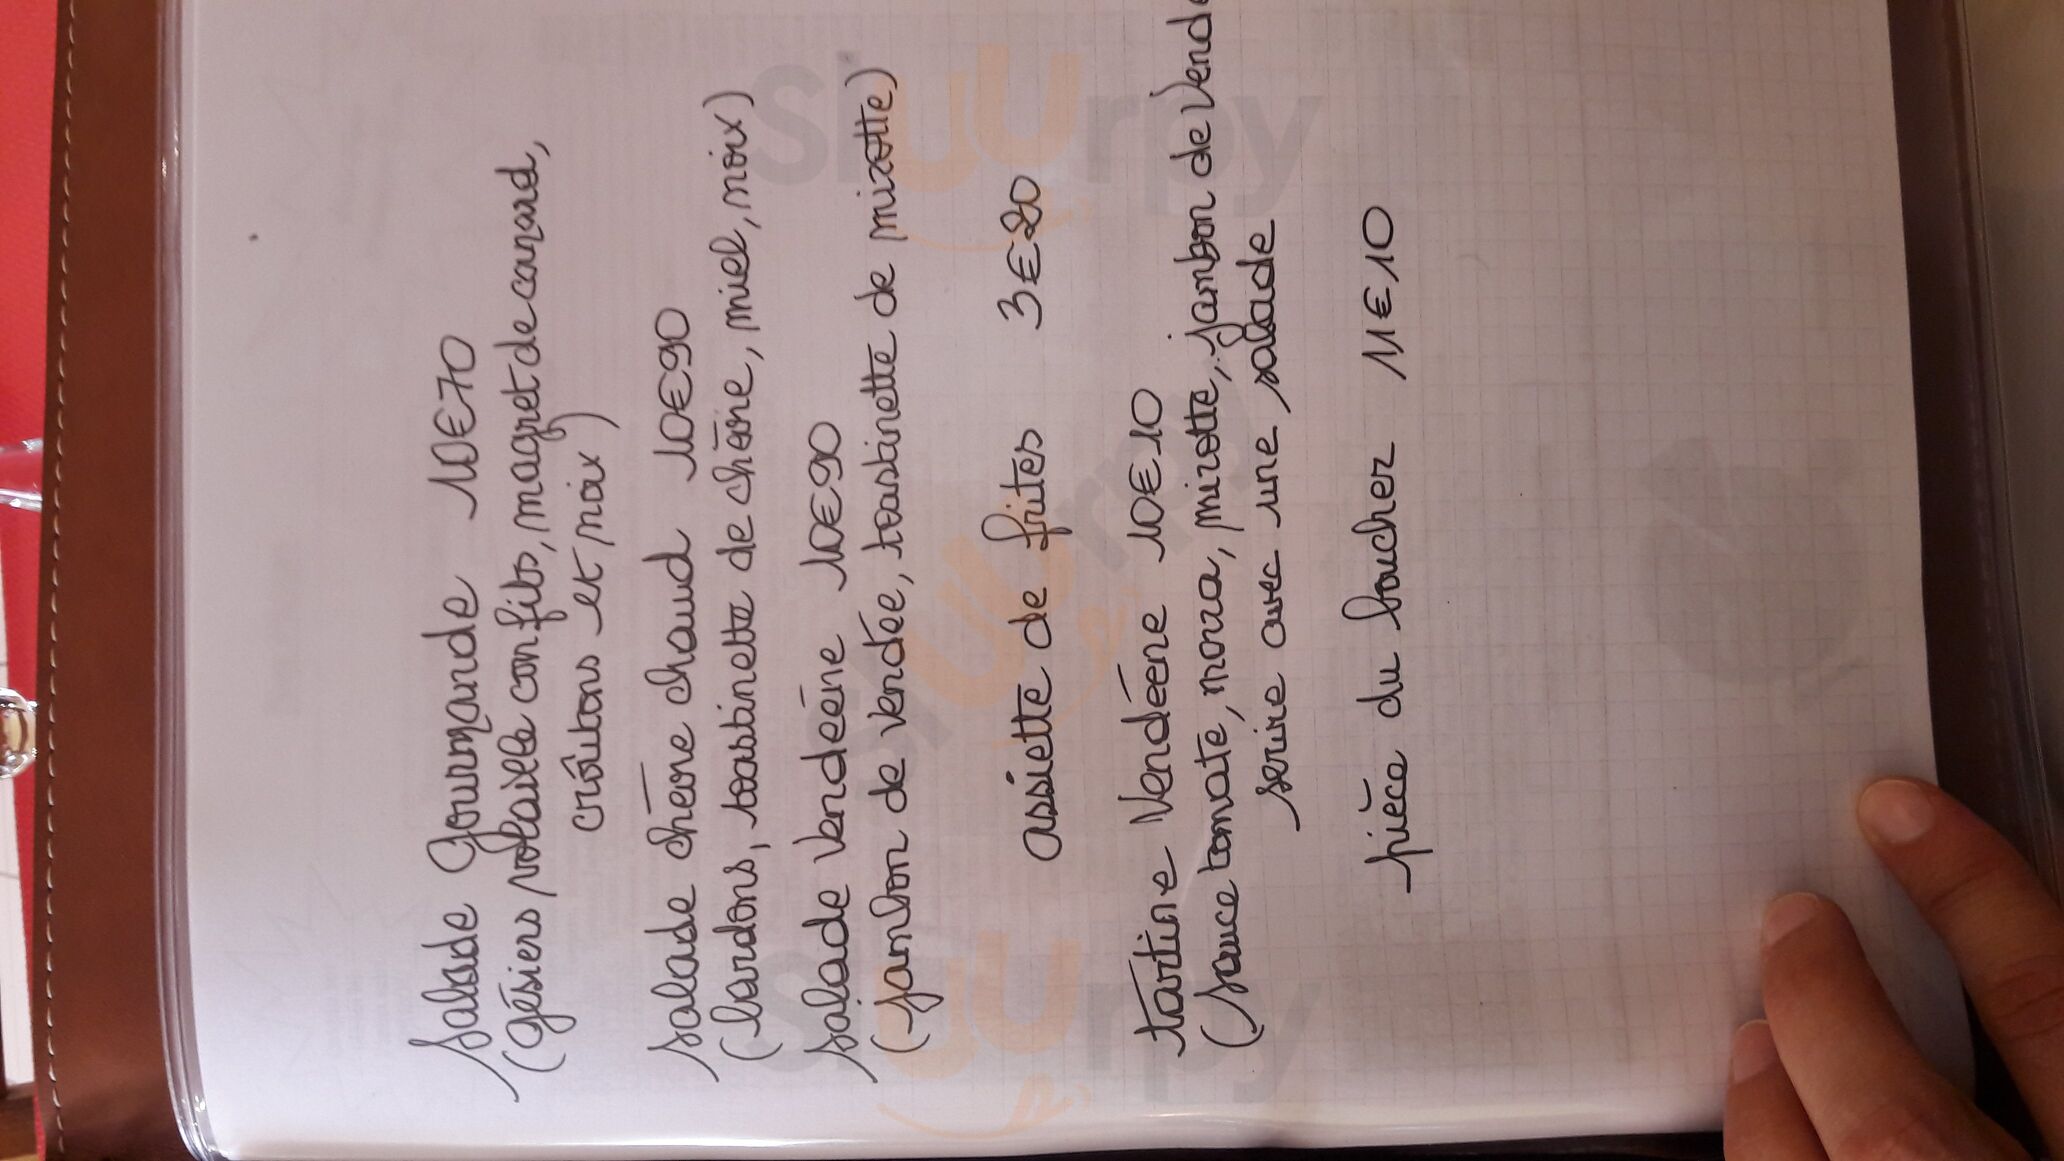 Salade Gourmande 10€70
(gésiers volaille confits, magret de canard,
croûtons et noix)
salade chèvre chaud 10€90
(lardons, toastinette de chèvre, miel, noix)
salade Vendéene 10€90
(jambon de Vendée, toastinette de mizotte)
assiette de frites 3€20
tartine Vendéene 10€10
(sauce tomate, mozza, mizotte, jambon de Vendé
servie avec une salade
pièce du boucher 11€10
sluurpy
sluurpy
sluurpy